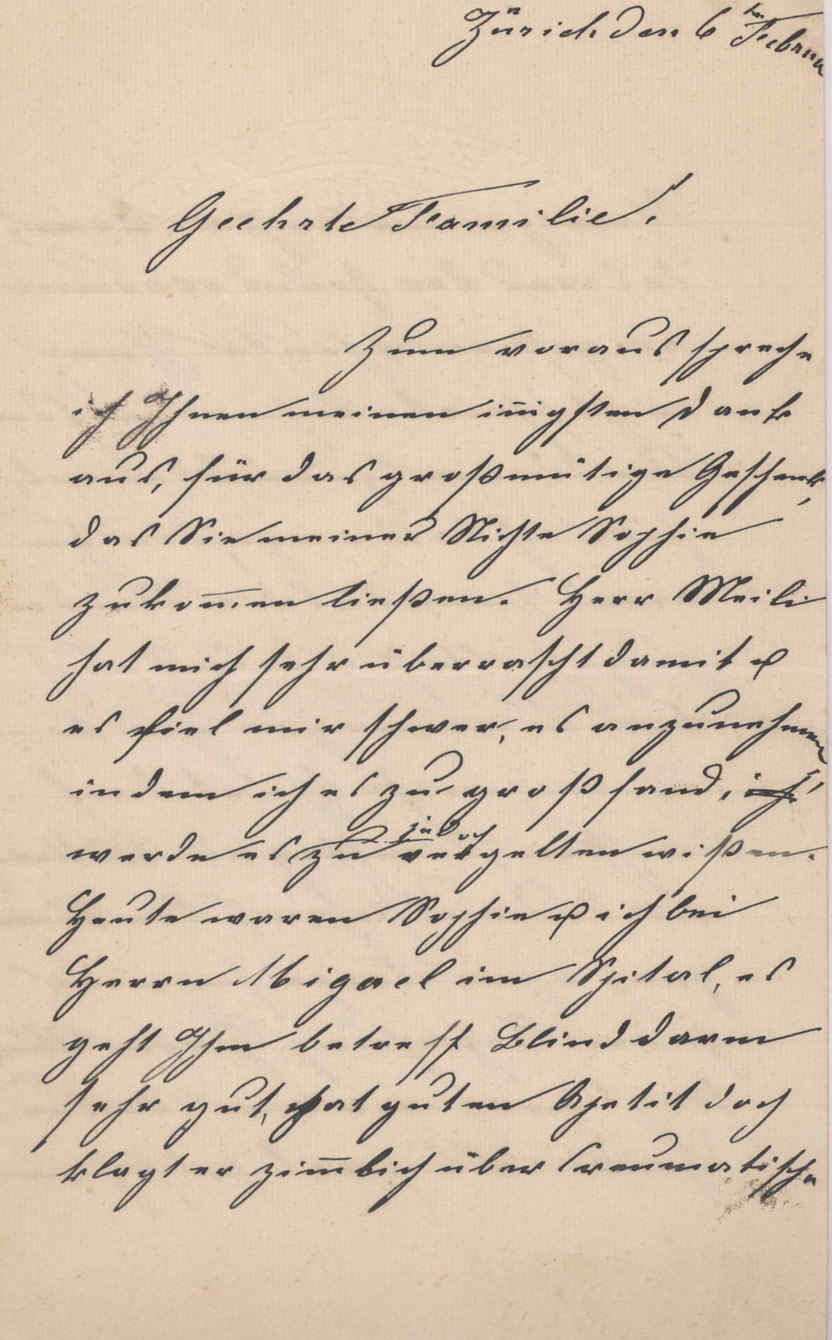 Zürich den 6ten Februa
Geehrte Familie.
Zum voraus spreche
ich Ihnen meinen iñigsten Dank
aus, für das großmütige Geschenk,
das Sie meiner Nichte Sophie
zukom̄en ließen. Herr Meili
hat mich sehr überrascht damit u
es fiel mir schwer, es anzunehmen
indem ich es zu groß fand, ich
jedoch
werde es zu vergelten wißen.
Heute waren Sophie u ich bei
Herrn Migael im Spital, es
geht Ihm betreff Blinddarm
sehr gut, hat guten Apetit doch
klagt er zim̄lich über reumatische